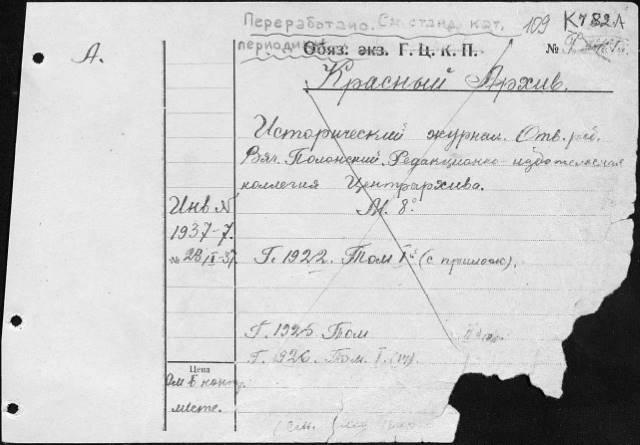 Переработано. См. станд. кат.
периодики
109 К782А
А.
Обяз. экз. Г. Ц. К. П.
№
Красный Архив.
Исторический журнал. Отв. ред.
Вяч. Полонский. Редакционно-издательская
коллегия Центрархива.
М. 8°.
Инв №
1937-7.
№ 28/II-37.
Г. 1922. Том I (с прилож).
Г. 1925. Том
Г. 1926. Том. I. (14).
Цена
Ом. в контр.
месте.